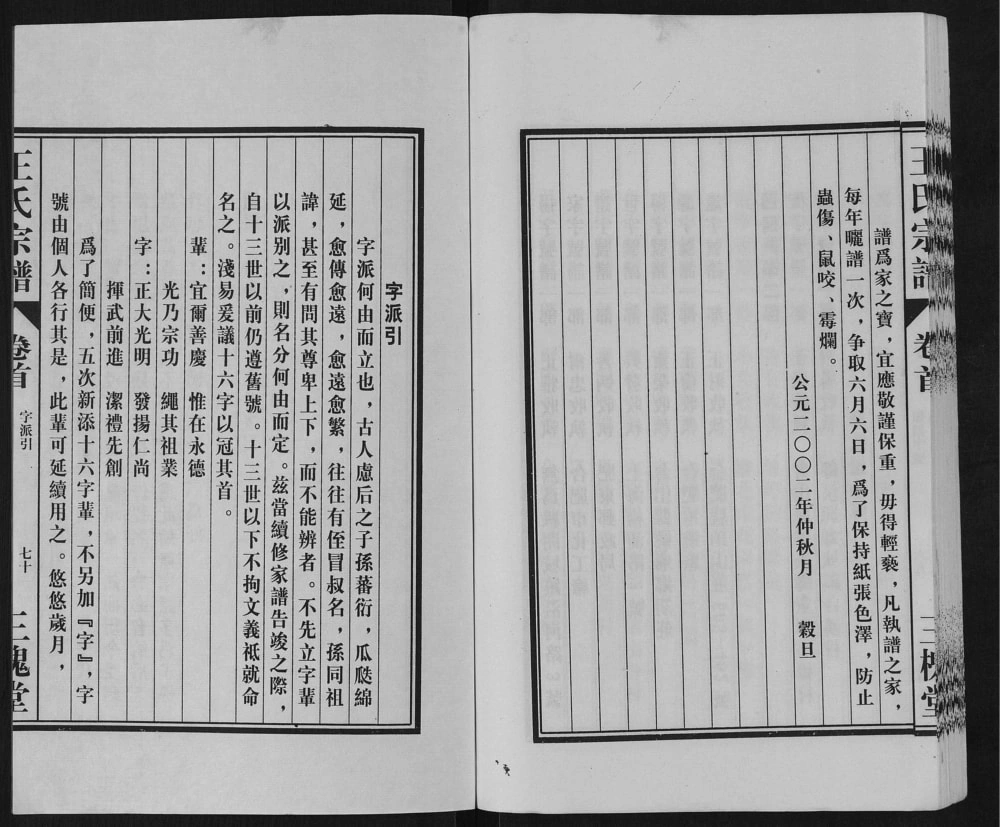 王氏宗譜
卷首
三槐堂
譜爲家之寶，宜應敬謹保重，毋得輕褻，凡執譜之家，
每年曬譜一次，争取六月六日，爲了保持紙張色澤，防止
蟲傷、鼠咬、霉爛。
公元二〇〇二年仲秋月　穀旦
字派引
字派何由而立也，古人慮后之子孫蕃衍，瓜瓞綿
延，愈傳愈遠，愈遠愈繁，往往有侄冒叔名，孫同祖
諱，甚至有問其尊卑上下，而不能辨者。不先立字輩
以派别之，則名分何由而定。兹當續修家譜告竣之際，
自十三世以前仍遵舊號。十三世以下不拘文義祗就命
名之。淺易爰議十六字以冠其首。
輩：宜爾善慶　惟在永德
光乃宗功　繩其祖業
字：正大光明　發揚仁尚
揮武前進　潔禮先創
爲了簡便，五次新添十六字輩，不另加『字』，字
號由個人各行其是，此輩可延續用之。悠悠歲月，
王氏宗譜
卷首
字派引
七十
三槐堂